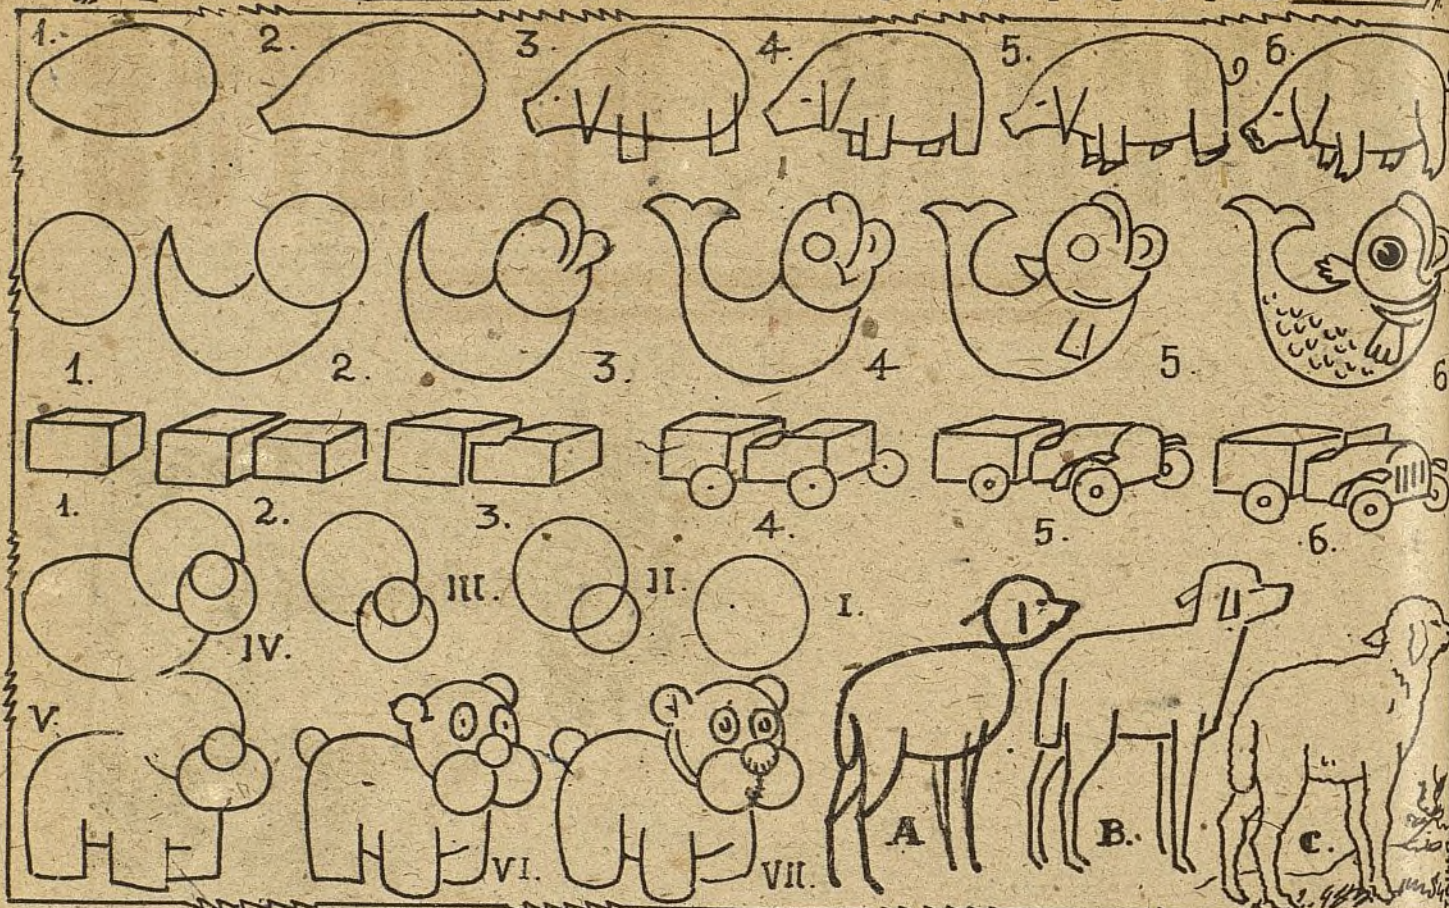 1. 2. 3 4. 5. 6.
1. 2. 3. 4 5. 6
1. 2. 3. 4. 5. 6.
IV. III. II. I.
V. VI. VII. A B. C.